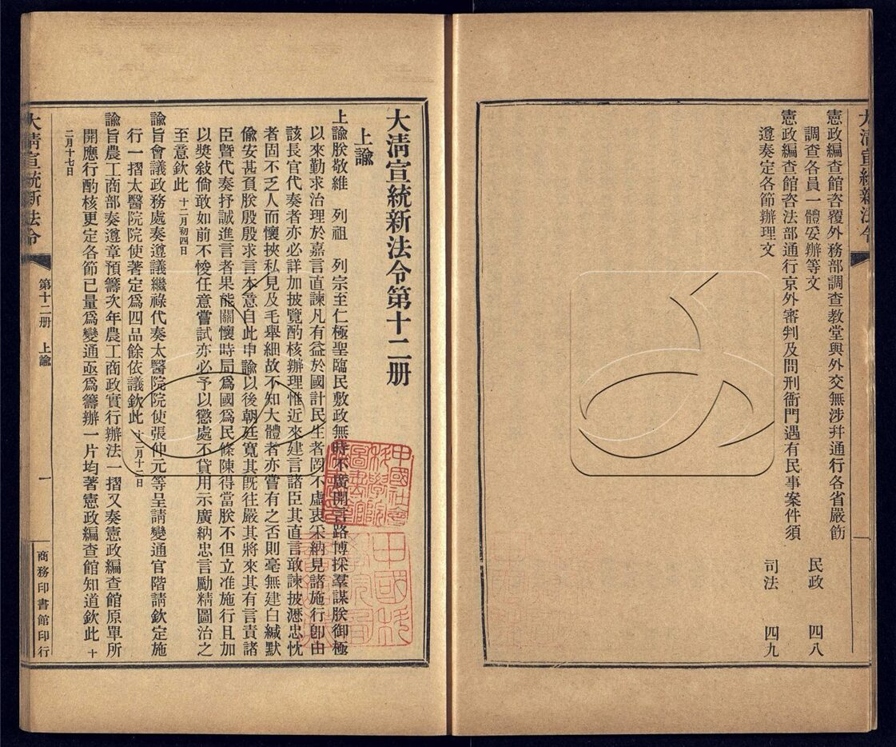 大淸宣統新法令
憲政編查館咨覆外務部調查教堂與外交無涉幷通行各省嚴飭
調查各員一體妥辦等文
民政 四八
憲政編查館咨法部通行京外審判及問刑衙門遇有民事案件須
遵奏定各節辦理文
司法 四九
大淸宣統新法令第十二册
上諭
上諭朕敬維 列祖 列宗至仁極聖臨民敷政無時不廣開言路博採羣謀朕御極
以來勤求治理於嘉言直諫凡有益於國計民生者罔不虛衷采納見諸施行卽由
該長官代奏者亦必詳加披覽酌核辦理惟近來建言諸臣其直言敢諫披瀝忠忱
者固不乏人而懷挾私見及毛舉細故不知大體者亦嘗有之否則毫無建白緘默
偷安甚負朕殷殷求言本意自此申諭以後朝廷寬其旣往嚴其將來其有言責諸
臣曁代奏抒誠進言者果能關懷時局爲國爲民條陳得當朕不但立准施行且加
以奬敍倘敢如前不悛任意嘗試亦必予以懲處不貸用示廣納忠言勵精圖治之
至意欽此 十二月初四日
諭旨會議政務處奏遵議繼祿代奏太醫院院使張仲元等呈請變通官階請欽定施
行一摺太醫院院使著定爲四品餘依議欽此 十二月十二日
諭旨農工商部奏遵章預籌次年農工商政實行辦法一摺又奏憲政編查館原單所
開應行酌核更定各節已量爲變通亟爲籌辦一片均著憲政編查館知道欽此 十
二月十七日
大淸宣統新法令
第十二册 上諭
一
商務印書館印行